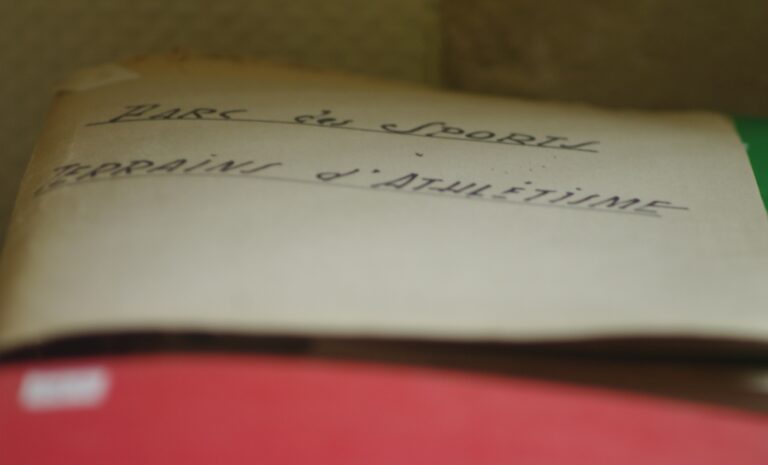 PARC des SPORTS
TERRAINS d'ATHLÉTISME